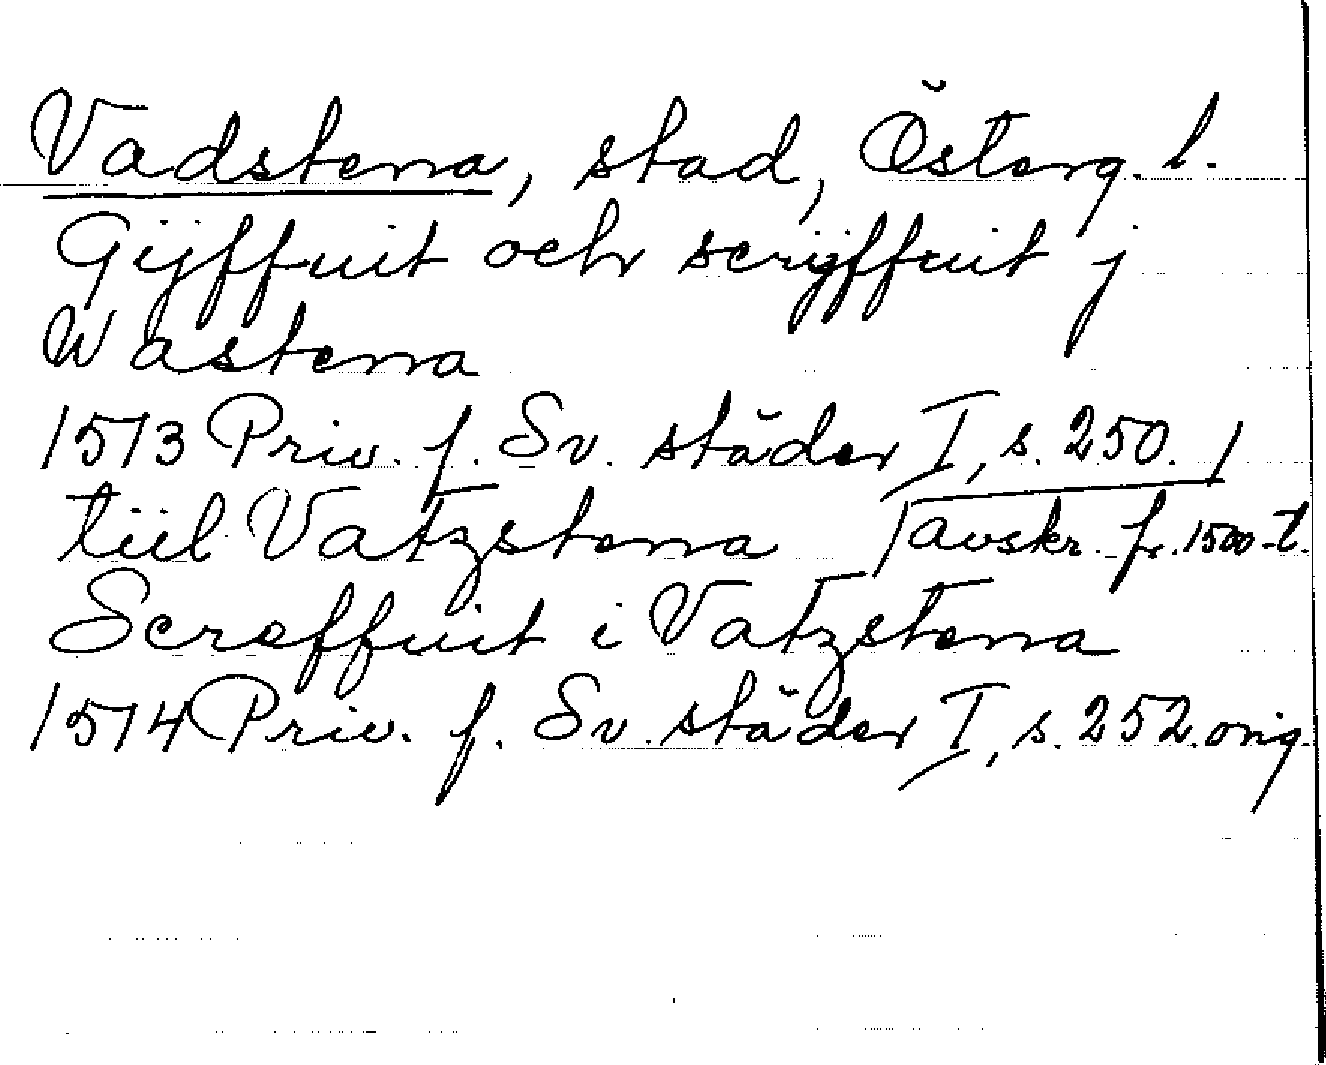 Vadstena, stad, Österg. l.
Gijffuit och scrijffuit j
Wastena
1513 Priv. f. Sv. städer I, s. 250. /
tiil Vatzstena /avskr. fr. 1500-t.
Screffuit i Vatzstena
1514 Priv. f. Sv. städer I, s. 252. orig.